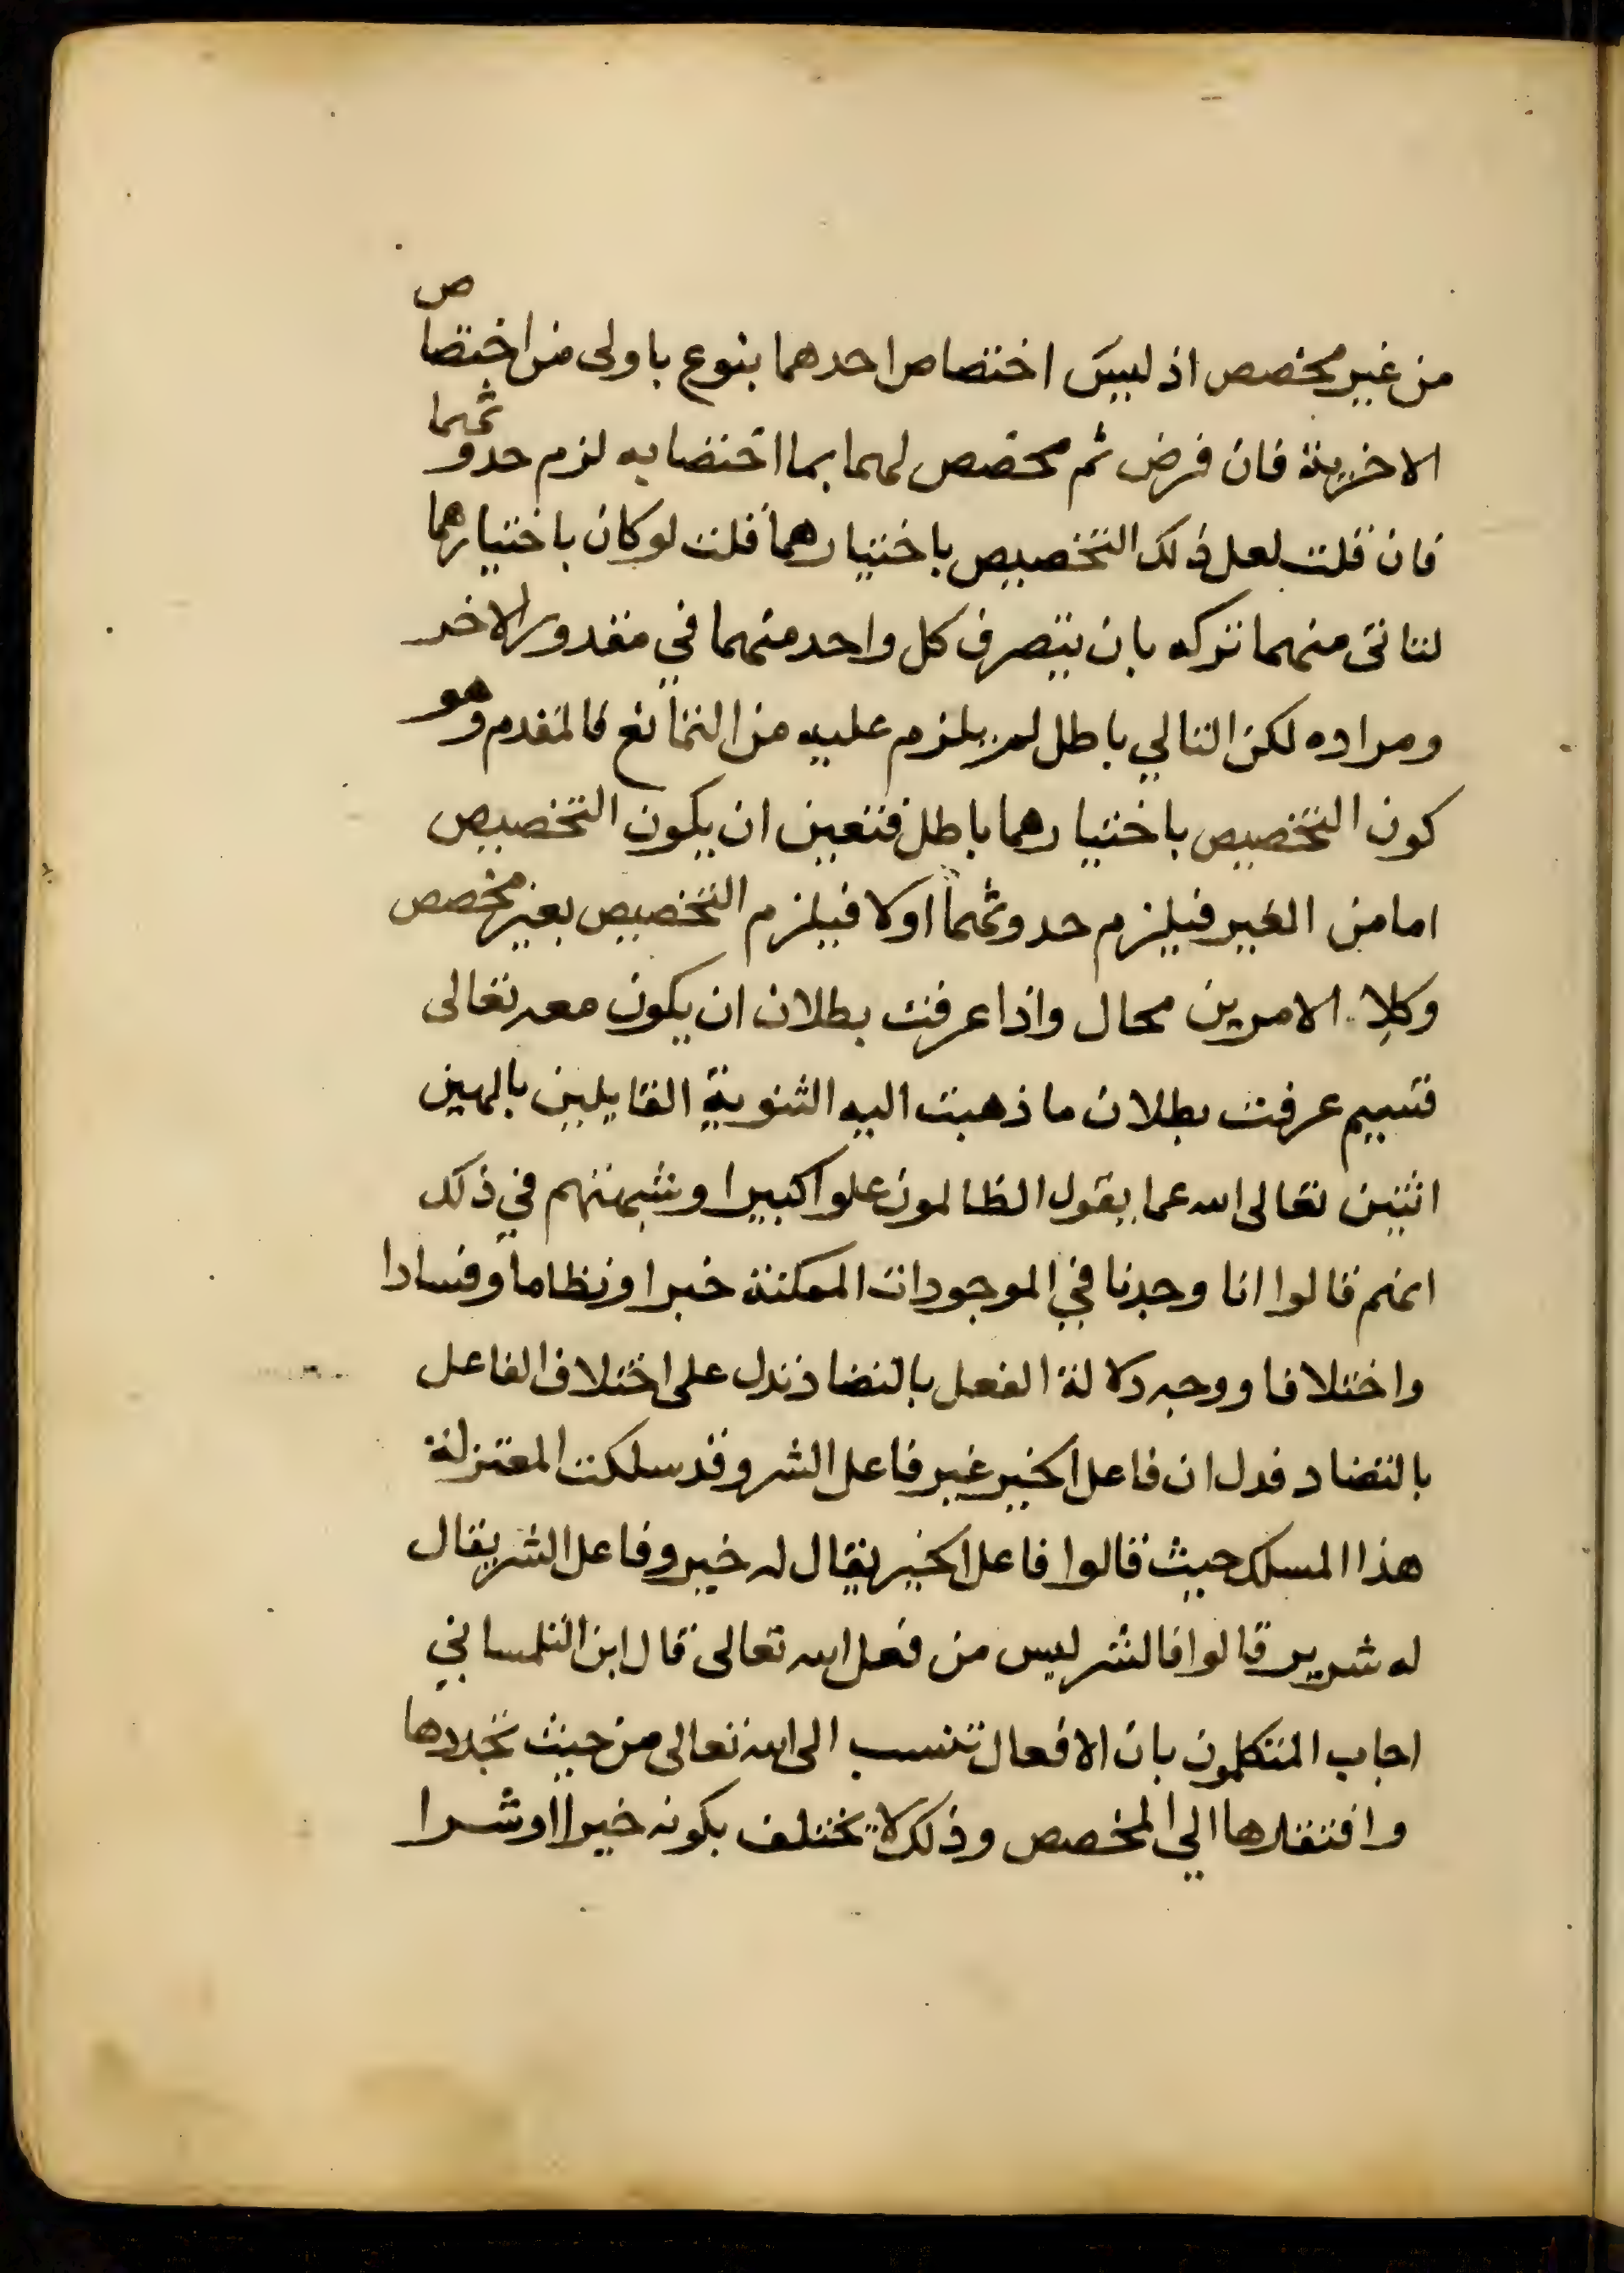 من غير مخصص اذ ليس اختصاص احدهما بنوع باولى من اختصاص
الاخر به فان فرض ثم مخصص لهما بما اختصا به لزم حدوثهما
فان قلت لعل ذلك التخصيص باختيارهما قلت لو كان باختيارهما
لتاتى منهما تركه بان يتصرف كل واحد منهما في مقدور الاخر
ومراده لكن التالي باطل لم يلزم عليه من التمانع فالمقدم وهو
كون التخصيص باختيارهما باطل فتعين ان يكون التخصيص
اما من الغير فيلزم حدوثهما اولا فيلزم التخصيص بغير مخصص
وكلا الامرين محال واذا عرفت بطلان ان يكون معه تعالى
قسيم عرفت بطلان ما ذهبت اليه الثنوية القايلين بالهين
اثنين تعالى الله عما يقول الظالمون علوا كبيرا وشبهتهم في ذلك
انهم قالوا انا وجدنا في الموجودات الممكنة خيرا ونظاما وفسادا
واختلافا ووجه دلالة الفعل بالتضاد تدل على اختلاف الفاعل
بالتضاد فدل ان فاعل الخير غير فاعل الشر وقد سلكت المعتزلة
هذا المسلك حيث قالوا فاعل الخير يقال له خير وفاعل الشر يقال
له شرير قالوا فالشر ليس من فعل الله تعالى قال ابن التلمساني
اجاب المتكلمون بان الافعال تنسب الى الله تعالى من حيث تجددها
وافتقارها الي المخصص وذلك لا يختلف بكونه خيرا او شرا